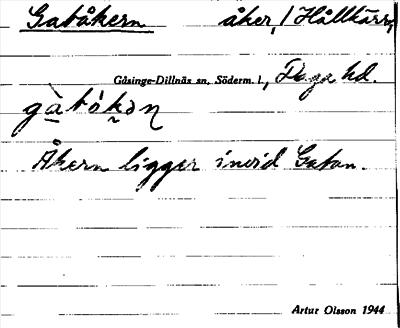 Gatåkern åker, / Hållkärr,
Gåsinge-Dillnäs sn, Söderm. l., Daga hd.
gàtókən
Åkern ligger invid Gatan.
Artur Olsson 1944